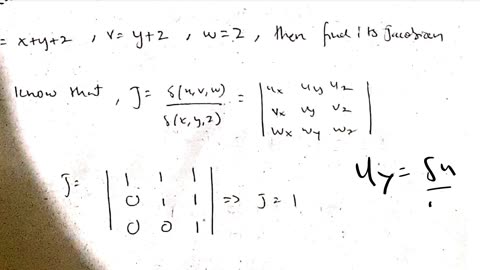 = x+y+z , v = y+z , w = z , then find its Jacobian
know that , J = δ(u,v,w) / δ(x,y,z) = | ux uy uz |
| vx vy vz |
| wx wy wz |
uy = δu
J = | 1 1 1 |
| 0 1 1 | => J = 1
| 0 0 1 |